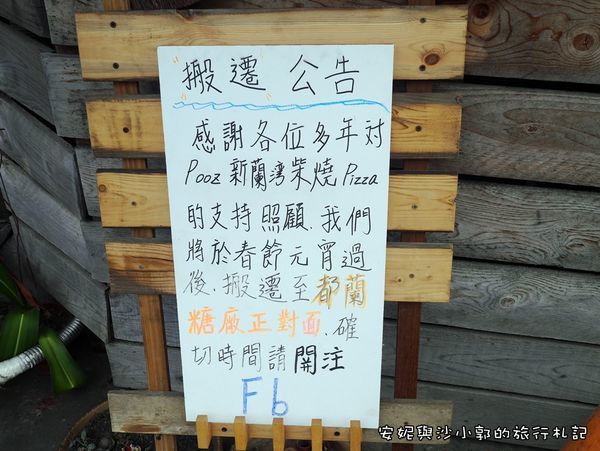 搬遷 公告
感謝各位多年对
Pooz 新蘭湾柴燒 Pizza
的支持照顧、我們
將於春節元宵過
後、搬遷至都蘭
糖廠正對面、確
切時間請開注
Fb
安妮與沙小郭的旅行札記